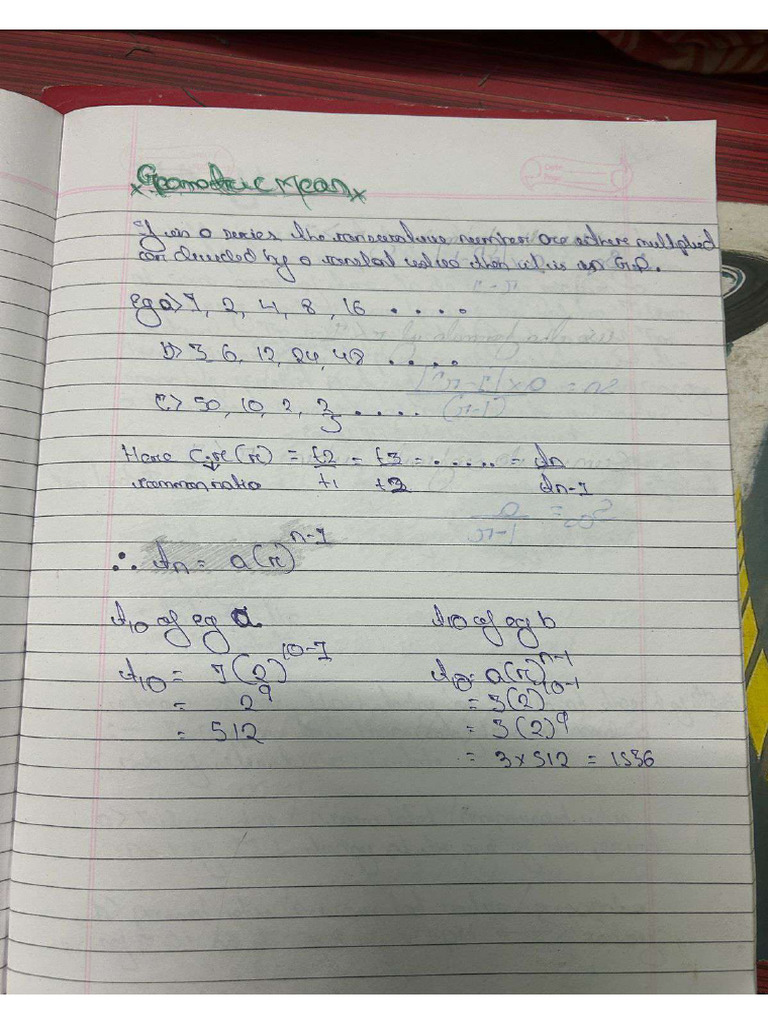 Geometric Mean
If in a series the consecutive number are either multiplied
or divided by a constant value then it is as G.P.
eg a> 1, 2, 4, 8, 16 . . . .
b> 3, 6, 12, 24, 48 . . . . .
c> 50, 10, 2, 2/5 . . . . .
Here C.r(r) = t2/t1 = t3/t2 = . . . . . = tn/tn-1
common ratio
∴ tn = a(r)^n-1
t10 of eg a
t10 = 1(2)^10-1
= 2^9
= 512
t10 of eg b
t10 = a(r)^n-1
= 3(2)^10-1
= 3(2)^9
= 3×512 = 1536